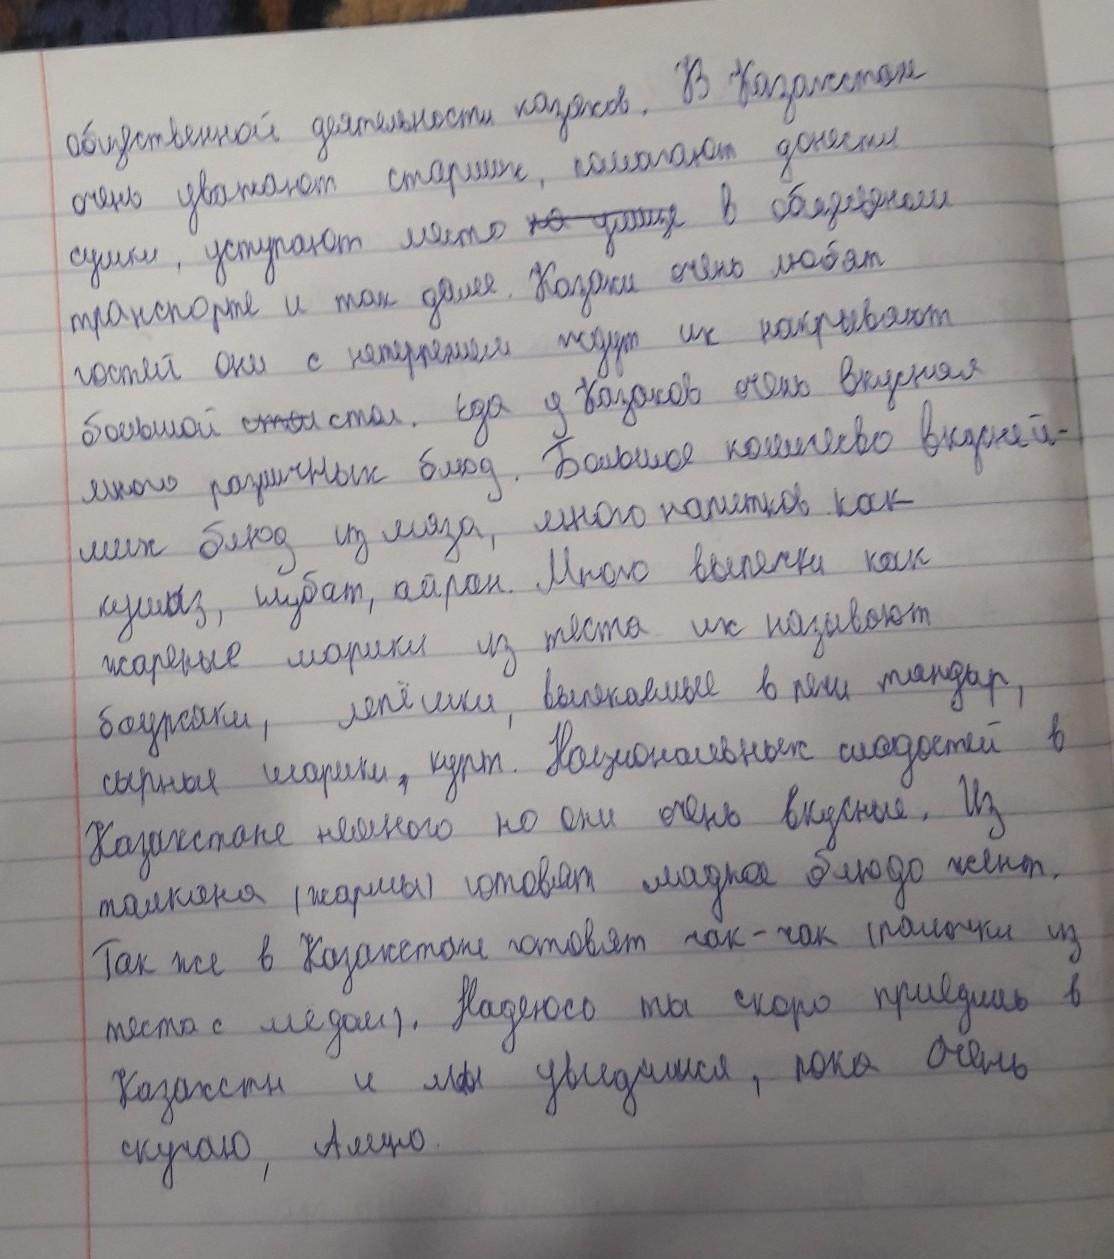 общественной деятельности казахов. В Казахстане
очень уважают старших, помогают донести
сумки, уступают место на улице в общественном
транспорте и так далее. Казахи очень любят
гостей они с нетерпением ждут их накрывают
большой стол. Еда у Казахов очень вкусная
много различных блюд. Большое количево вкусней-
ших блюд из мяза, много напитков как
кумыз, шубат, айран. Много выпечки как
жареные шарики из теста их называют
баурсаки, лепёшки, выпекаемые в печи тандыр,
сырные шарики, курт. Национальных сладостей в
Казахстане немного но они очень вкусные. Из
талкана (жармы) готовят сладкое блюдо жент.
Так же в Казахстане готовят чак-чак (палочки из
теста с медом). Надеюсь ты скоро приедишь в
Казахстн и мы увидимся, пока очень
скучаю,